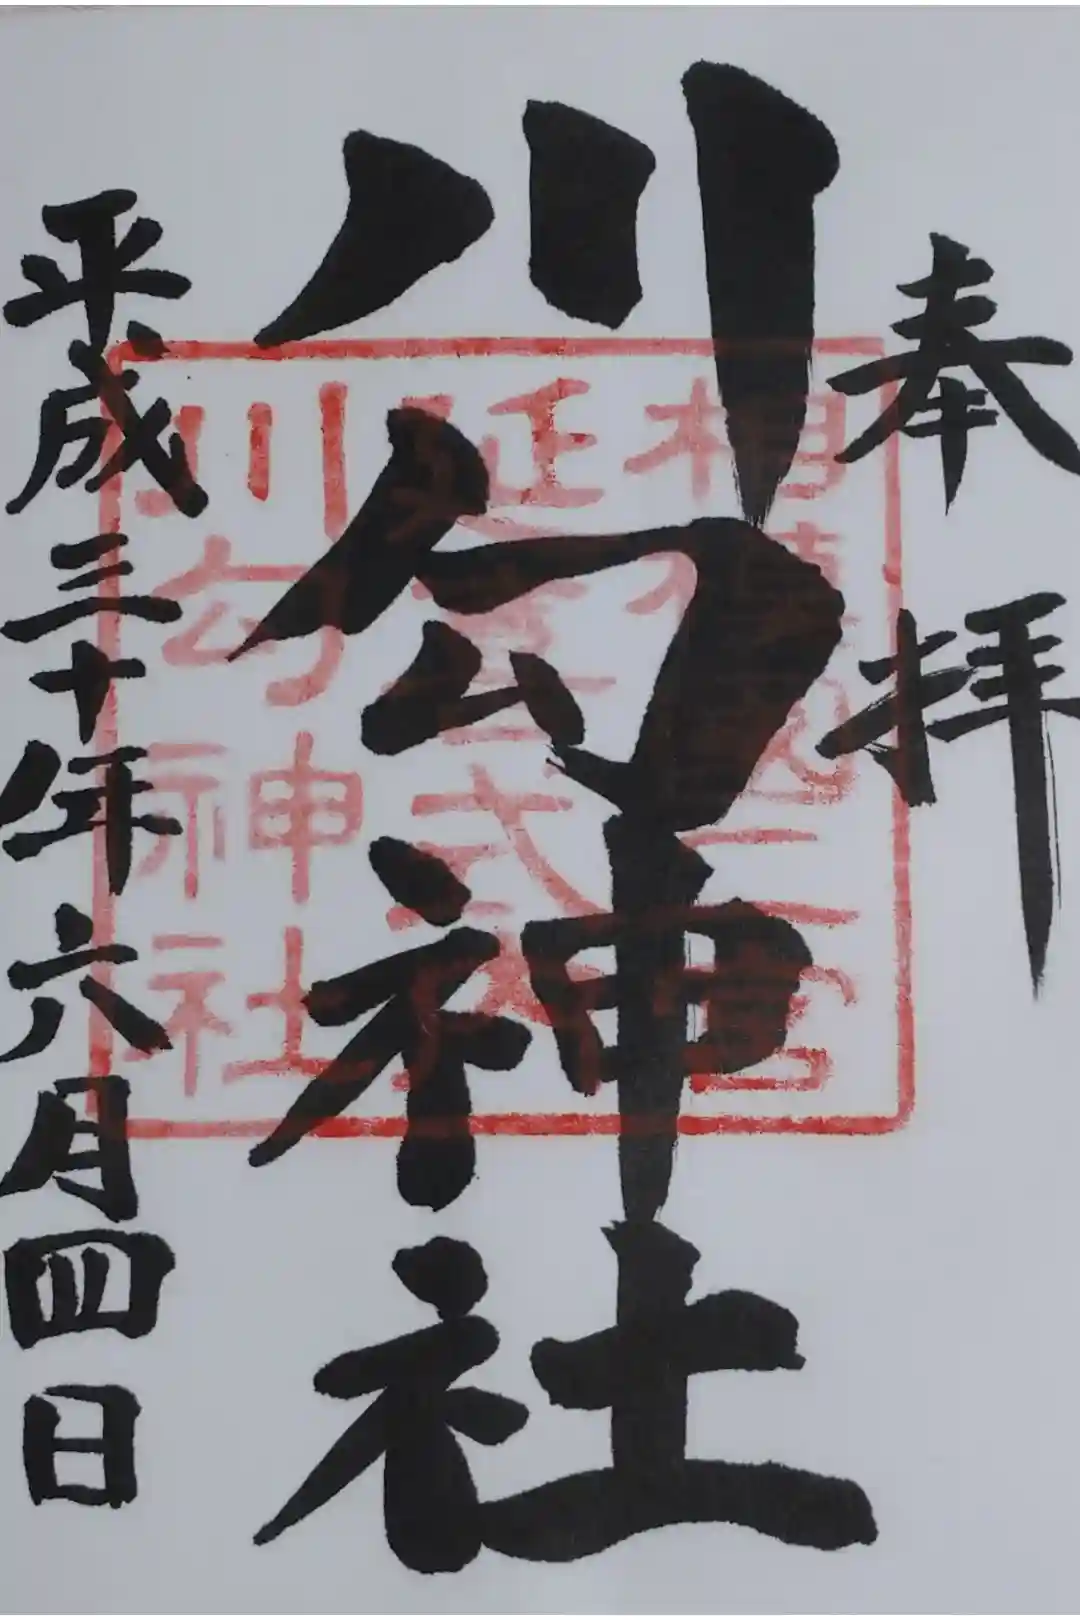 奉拝
川勾神社
平成三十年六月四日
相模國二宮
延喜式内
川勾神社